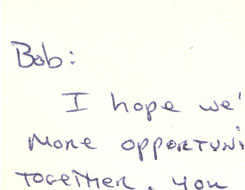 Bob:
I hope we'
more opportuni
together. You